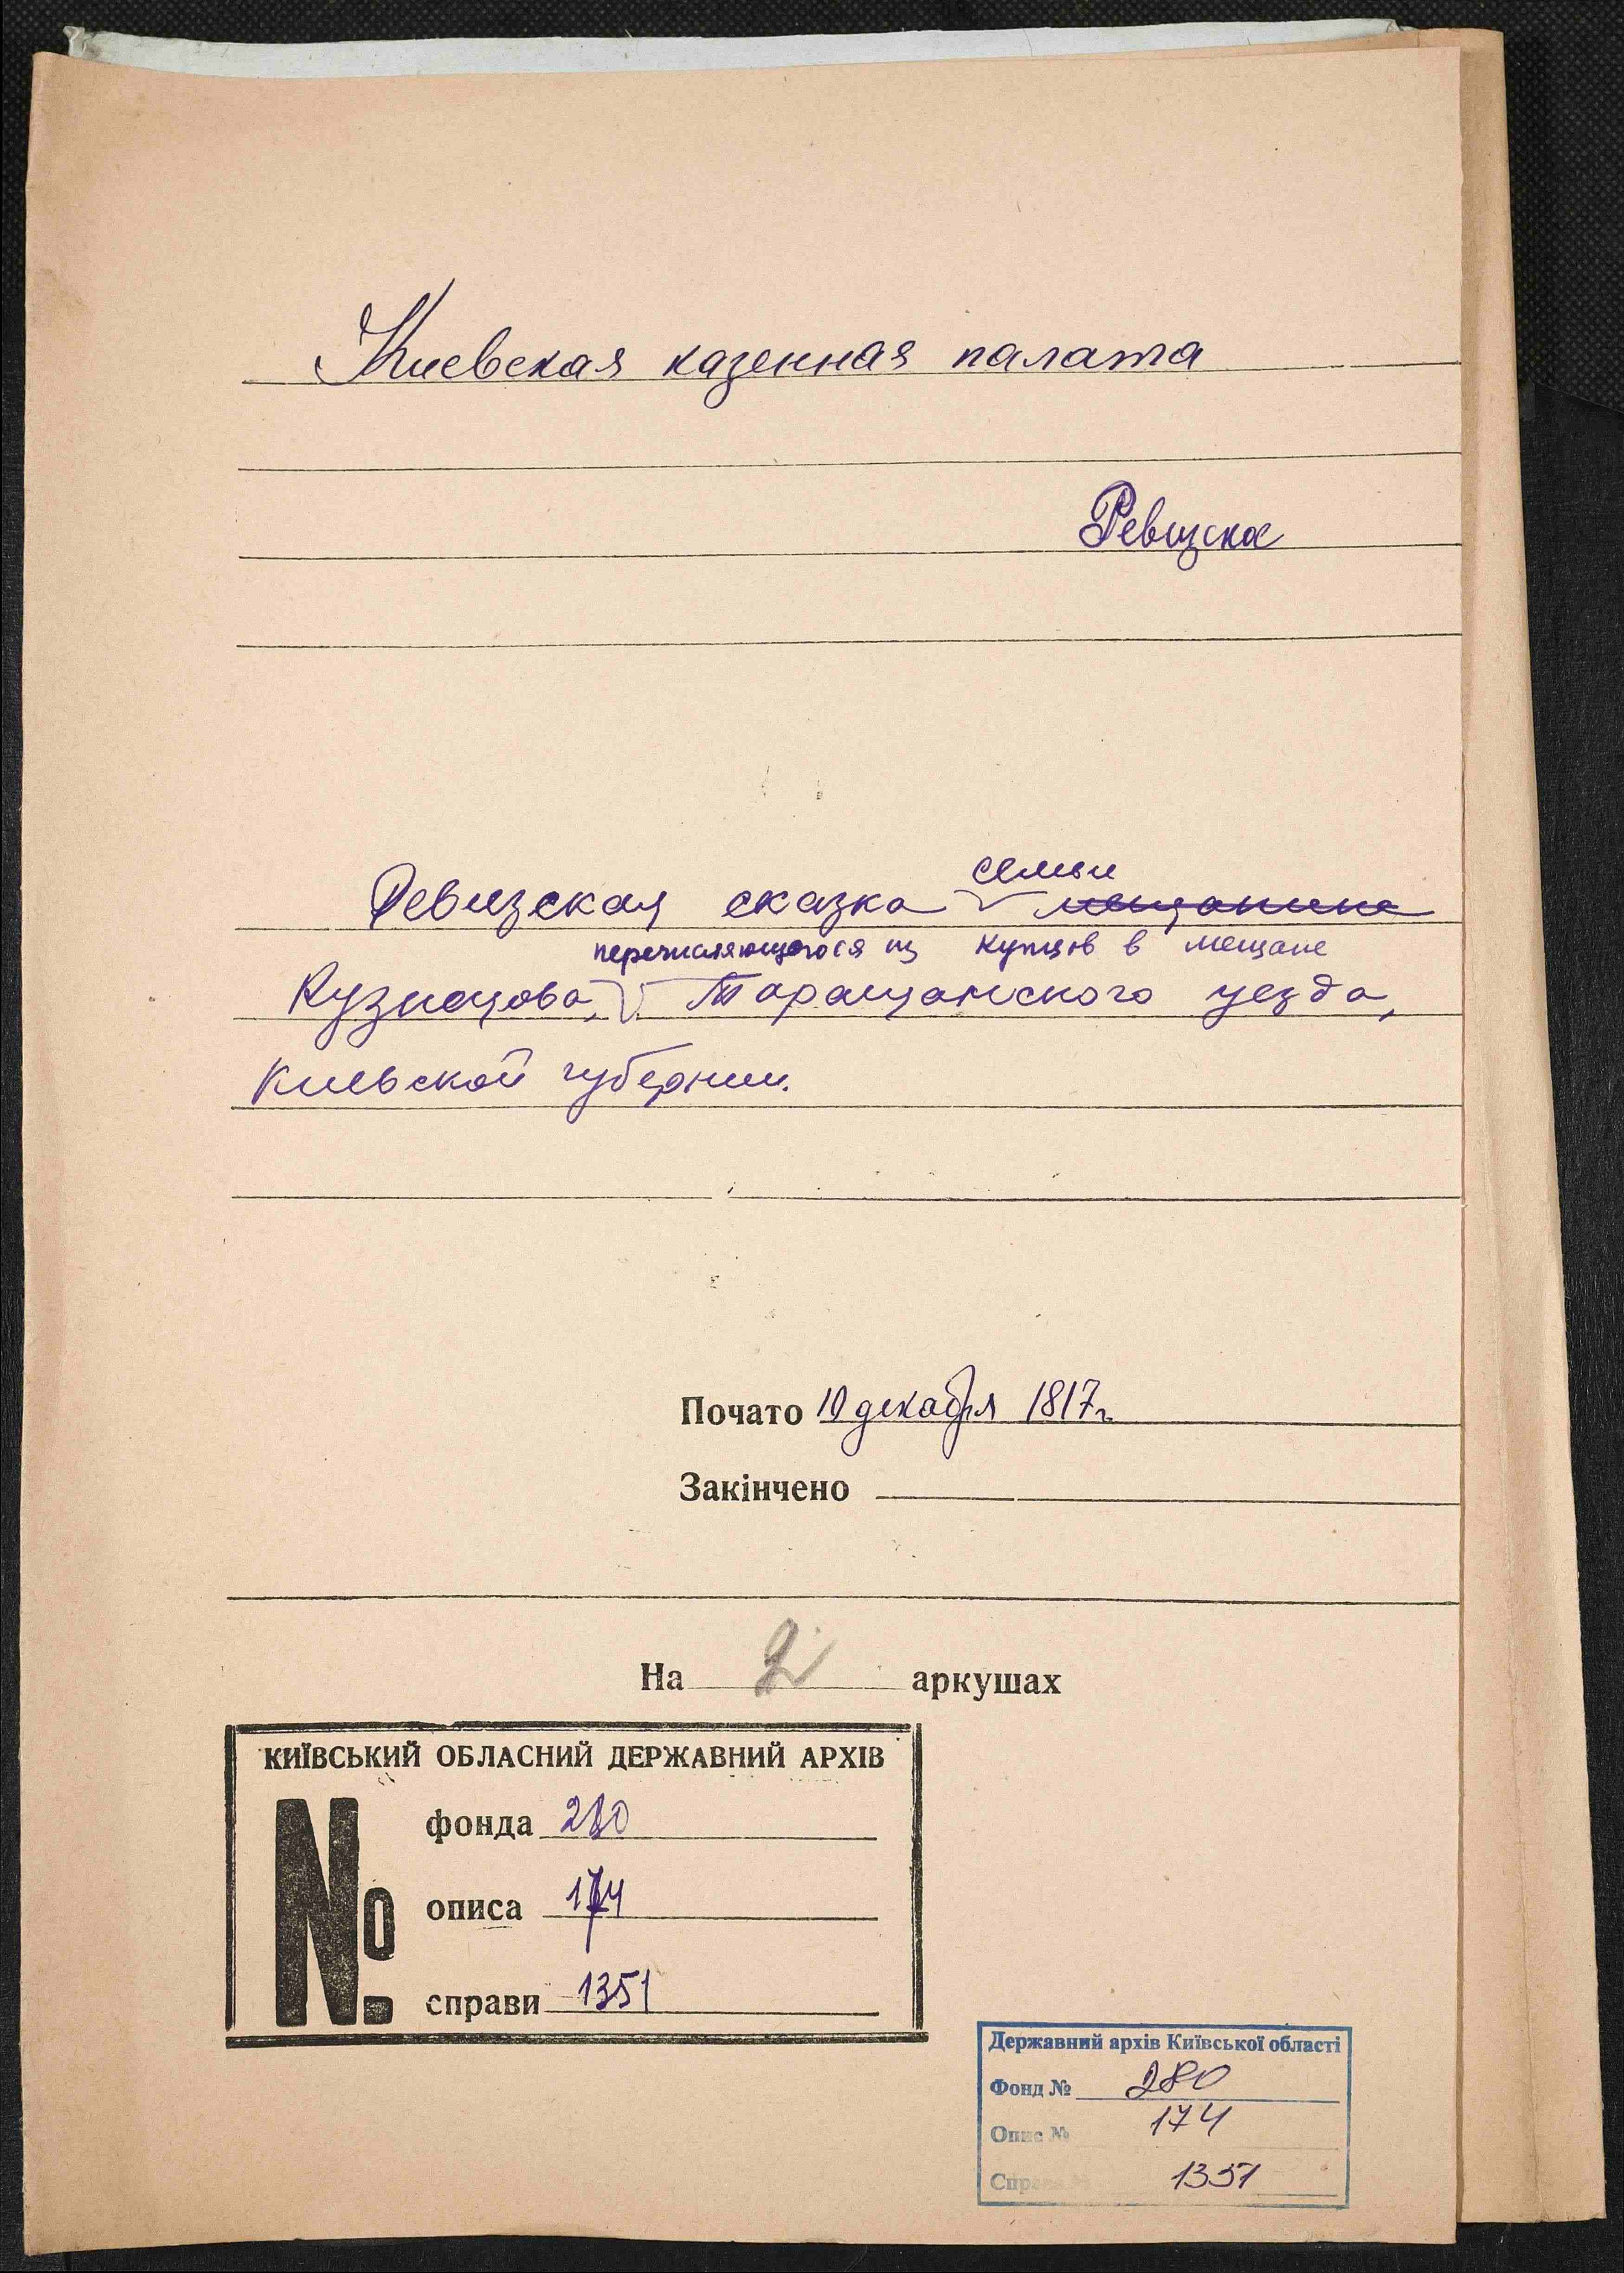 Киевская казенная палата
Ревизска
семьи
Ревизская сказка мещанина
перечисляющегося из купцов в мещане
Кузнецова, Таращанского уезда,
Киевской губернии.
Почато 10 декабря 1817г.
Закінчено
На 2 аркушах
КИЇВСЬКИЙ ОБЛАСНИЙ ДЕРЖАВНИЙ АРХІВ
№ фонда 280
описа 174
справи 1351
Державний архів Київської області
Фонд № 280
Опис № 174
Справа № 1351